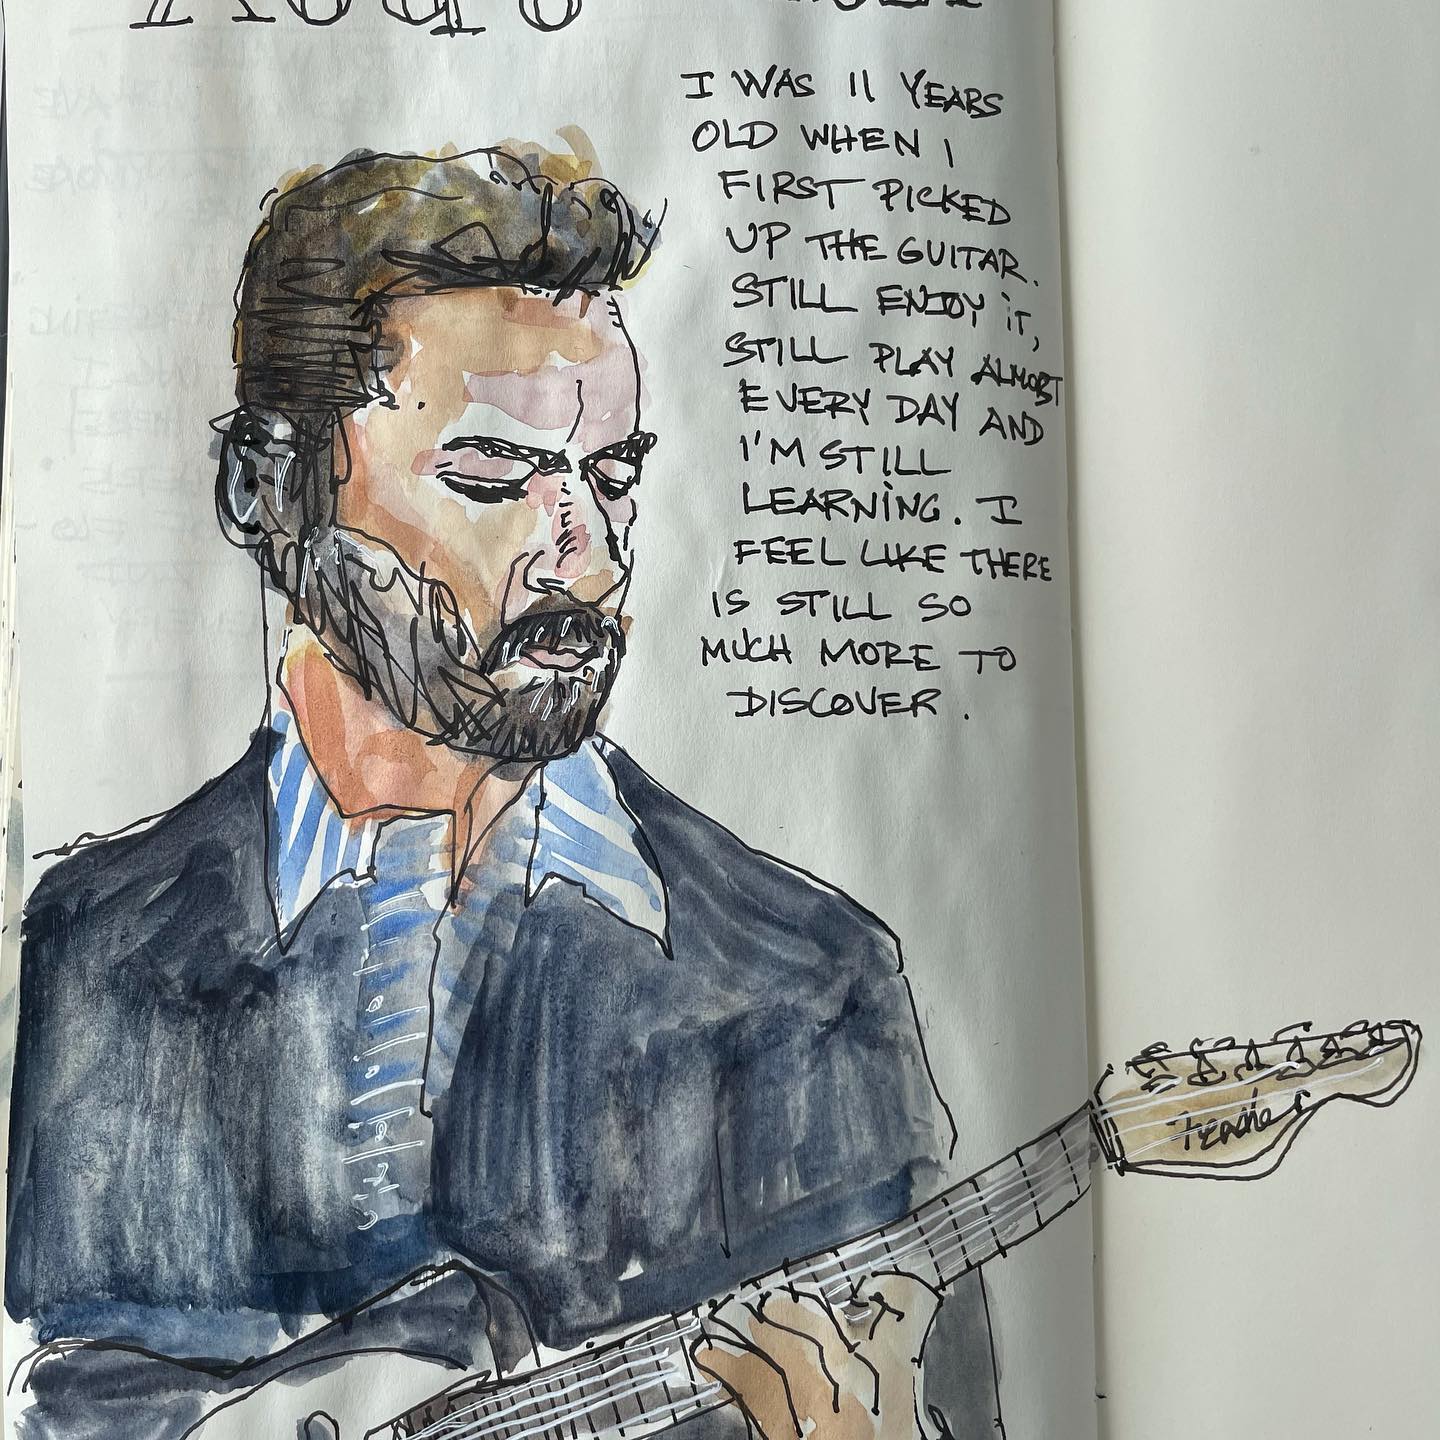 I WAS 11 YEARS
OLD WHEN I
FIRST PICKED
UP THE GUITAR.
STILL ENJOY IT,
STILL PLAY ALMOST
EVERY DAY AND
I'M STILL
LEARNING. I
FEEL LIKE THERE
IS STILL SO
MUCH MORE TO
DISCOVER.